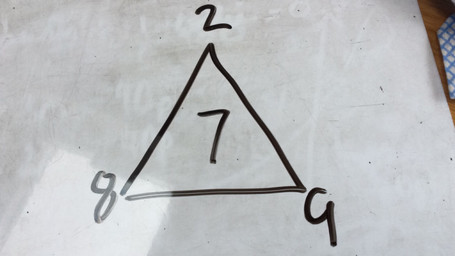 2
7
8 9